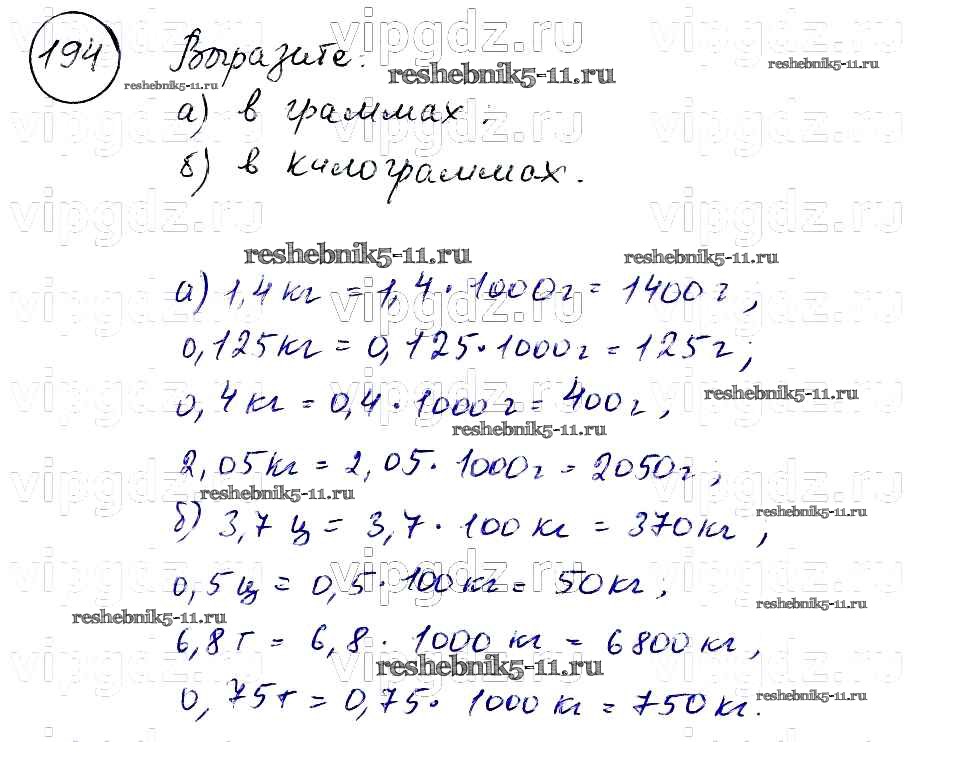 194 Выразите:
а) в граммах;
б) в килограммах.
а) 1,4 кг = 1,4 · 1000 г = 1400 г;
0,125 кг = 0,125 · 1000 г = 125 г;
0,4 кг = 0,4 · 1000 г = 400 г;
2,05 кг = 2,05 · 1000 г = 2050 г;
б) 3,7 ц = 3,7 · 100 кг = 370 кг;
0,5 ц = 0,5 · 100 кг = 50 кг;
6,8 т = 6,8 · 1000 кг = 6800 кг;
0,75 т = 0,75 · 1000 кг = 750 кг.
vipgdz.ru
reshebnik5-11.ru